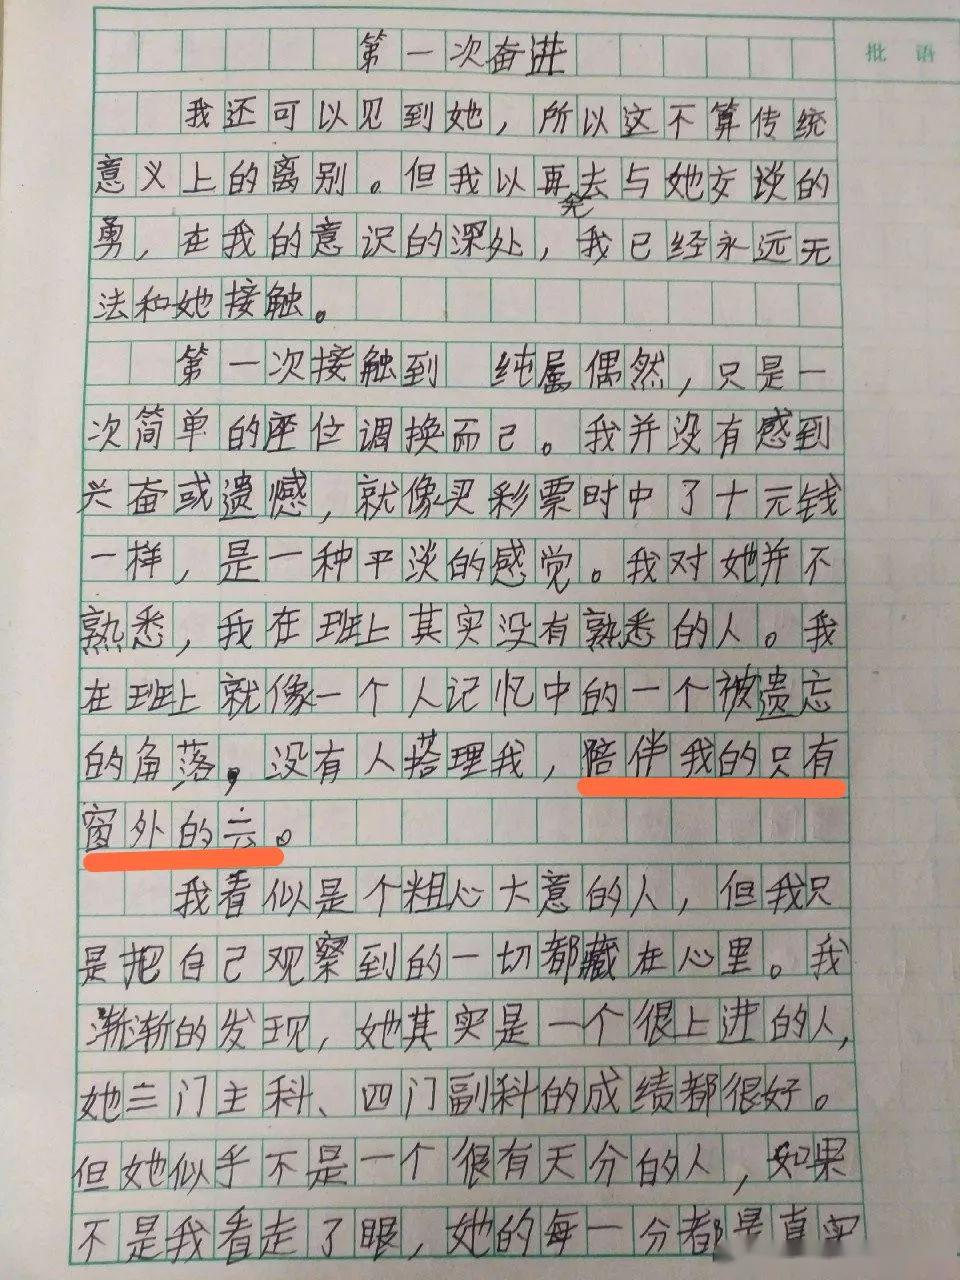 第一次奋进
批 语
我还可以见到她，所以这不算传统
意义上的离别。但我以再去与她交谈的
勇，在我的意识的深处，我已经永远无
法和她接触。
第一次接触到 纯属偶然，只是一
次简单的座位调换而已。我并没有感到
兴奋或遗憾，就像买彩票时中了十元钱
一样，是一种平淡的感觉。我对她并不
熟悉，我在班上其实没有熟悉的人。我
在班上就像一个人记忆中的一个被遗忘
的角落，没有人搭理我，陪伴我的只有
窗外的云。
我看似是个粗心大意的人，但我只
是把自己观察到的一切都藏在心里。我
渐渐的发现，她其实是一个很上进的人，
她三门主科、四门副科的成绩都很好。
但她似乎不是一个很有天分的人，如果
不是我看走了眼，她的每一分都是真实